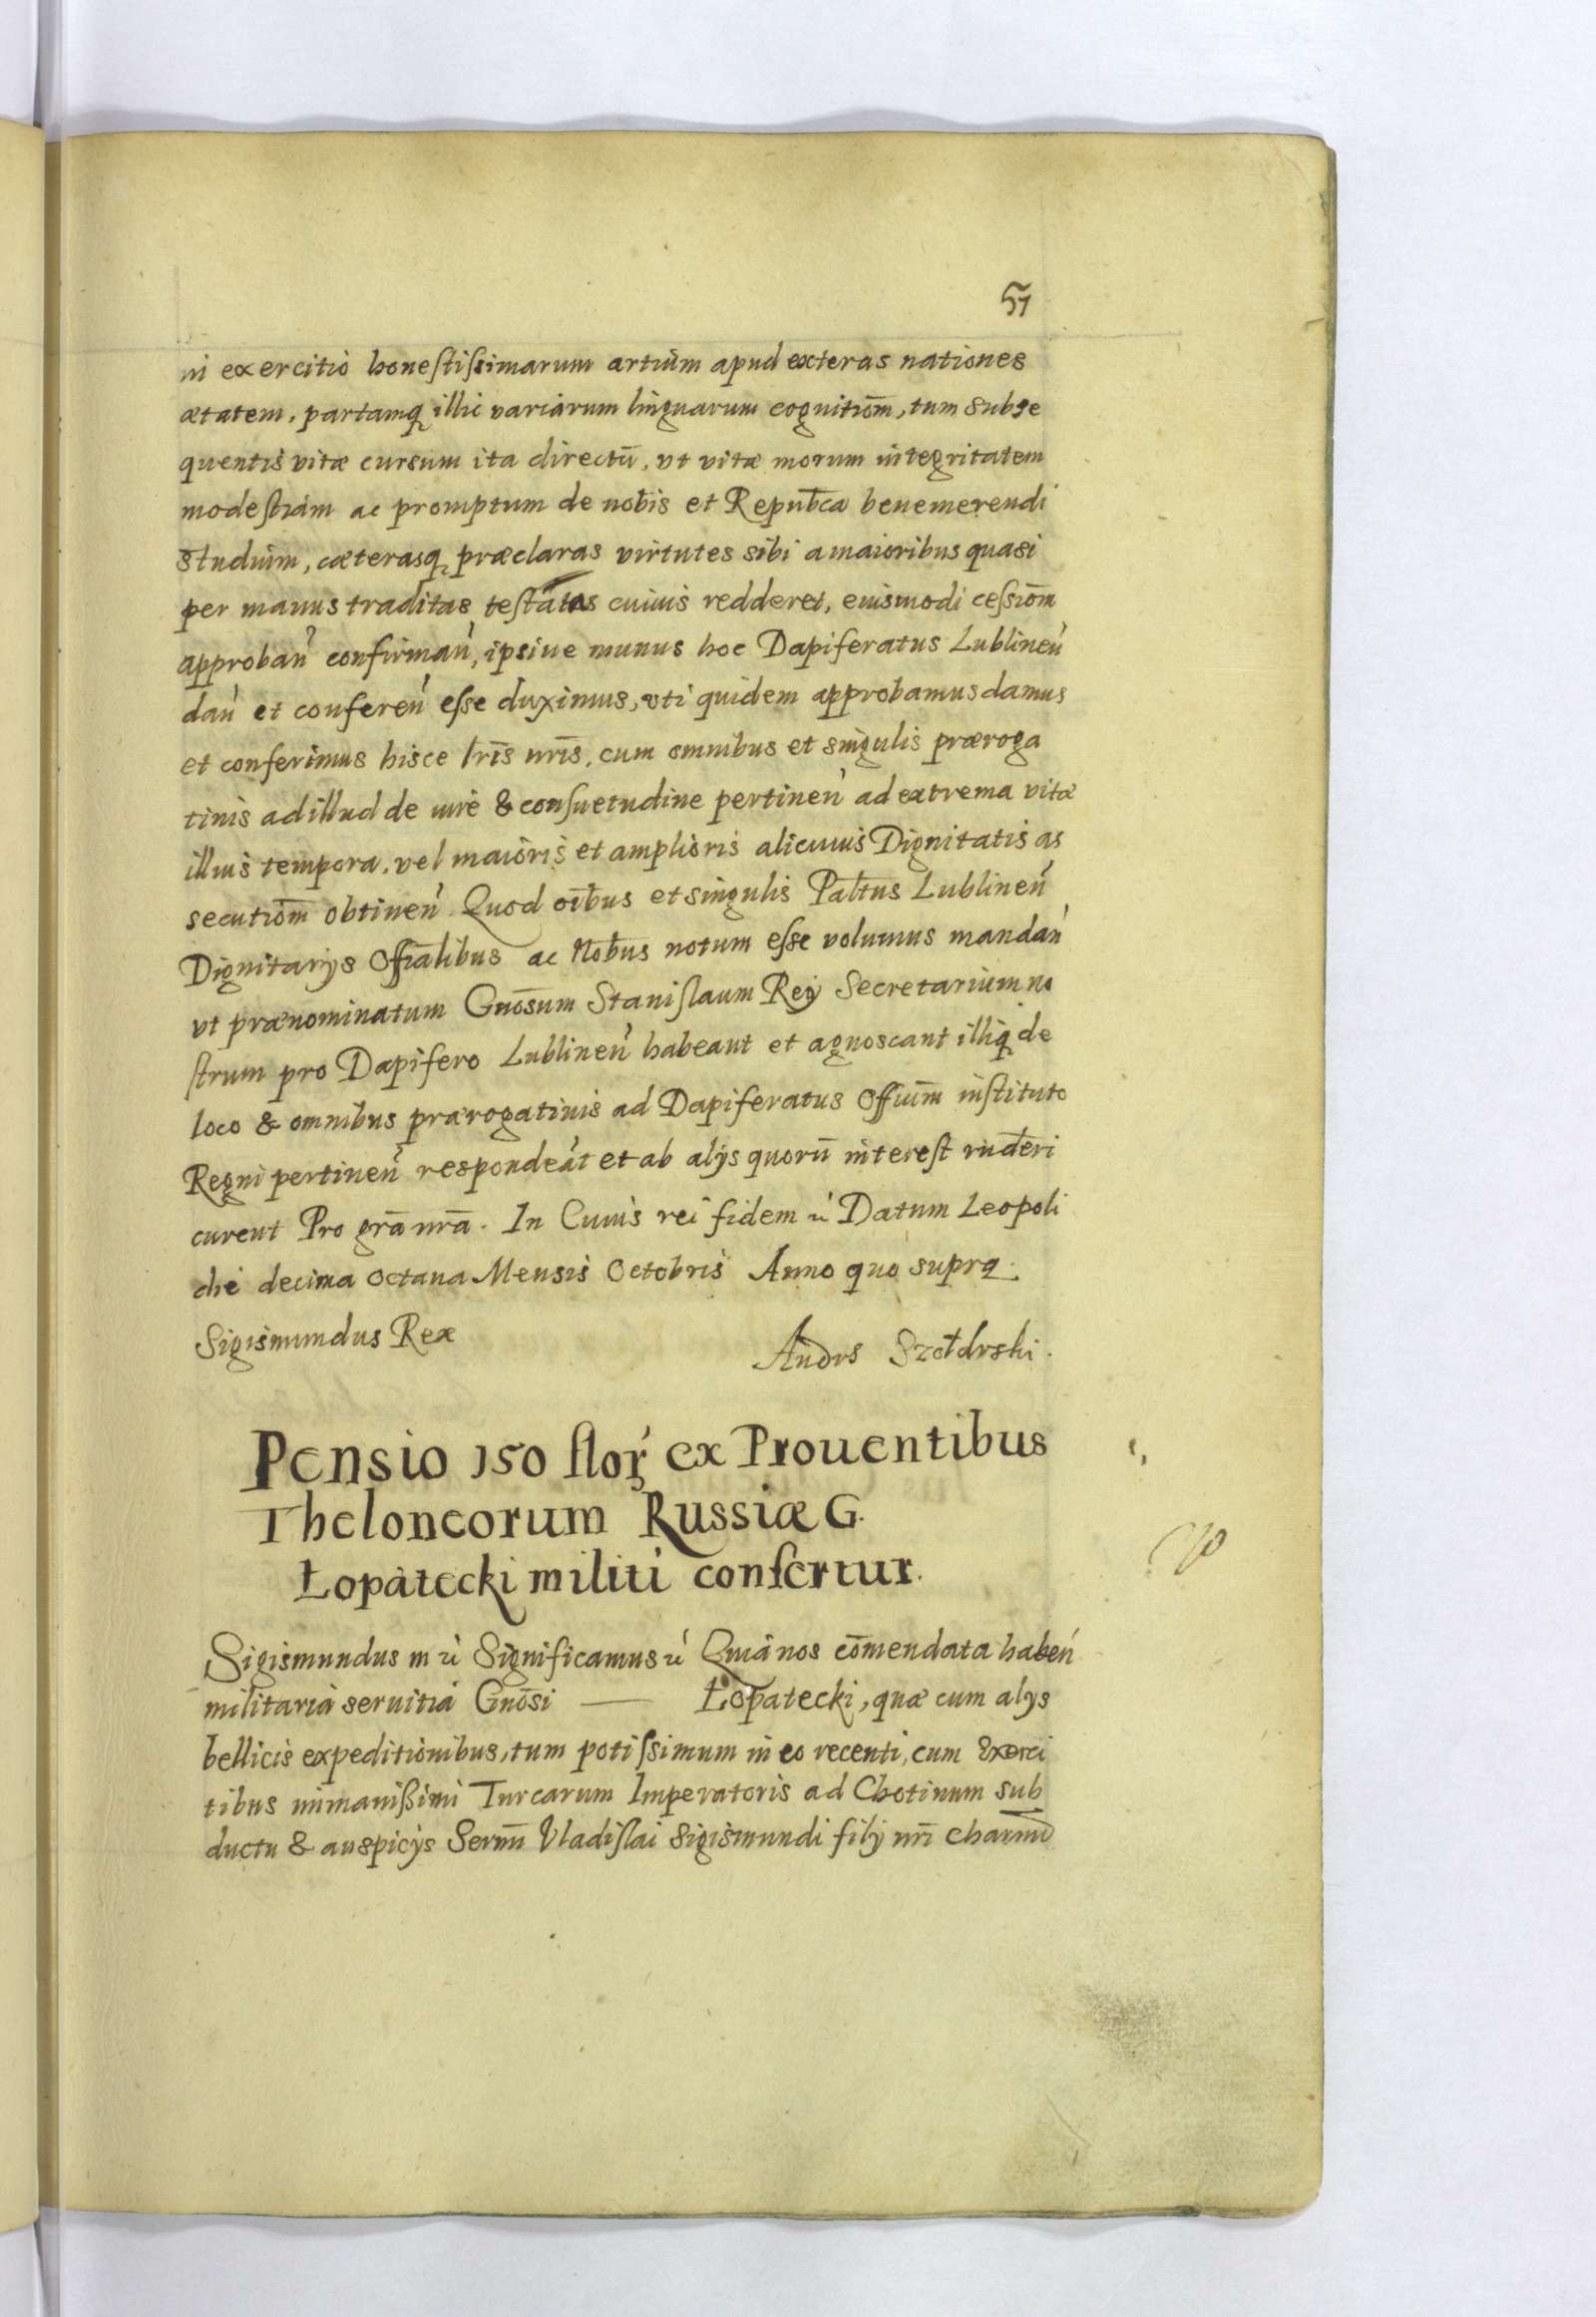 57
in exercitio honestissimarum artium apud exteras nationes
ætatem, partamq illic variarum linguarum cognitiōm, tum subse
quentis vitæ cursum ita directū, vt vitæ morum integritatem
modestiam ac promptum de nobis et Repubca benemerendi
studium, cæterasq præclaras virtutes sibi a maioribus quasi
per manus traditas testatas cuiuis redderet, eiusmodi cessiōm
approban confirman, ipsiue munus hoc Dapiferatus Lublinen
dan et conferen esse duximus, vti quidem approbamus damus
et conferimus hisce lr̄is nr̄is, cum omnibus et singulis præroga
tiuis ad illud de iure & consuetudine pertinen ad extrema vitæ
illius tempora, vel maioris et amplioris alicuius Dignitatis as
secutiōm obtinen Quod oībus et singulis Paltus Lublinen
Dignitarijs Offialibus ac Nobus notum esse volumus mandan
vt prænominatum Gnōsum Stanislaum Rey Secretarium no
strum pro Dapifero Lublinen habeant et agnoscant illiq de
loco & omnibus prærogatiuis ad Dapiferatus Offium instituto
Regni pertinen respondeāt et ab alijs quorū interest rnderi
curent Pro grā nrā. In Cuius rei fidem Datum Leopoli
die decima octaua Mensis Octobris Anno quo supra.
Sigismundus Rex
Andrs Szołdrski.
Pensio 150 flor ex Prouentibus
Theloneorum Russiæ G.
Łopatecki militi confertur.
Sigismundus III Significamus Quia nos cōmendata haben
militaria seruitia Gnōsi — Łopatecki, quæ cum alijs
bellicis expeditionibus, tum potissimum in eo recenti, cum Exerci
tibus immanissimi Turcarum Imperatoris ad Chotinum sub
ductu & auspicijs Sermi Vladislai Sigismundi filij nr̄i charmi